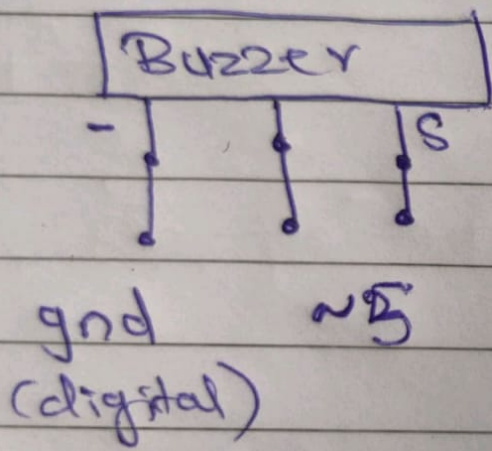 Buzzer
- S
gnd ~5
(digital)